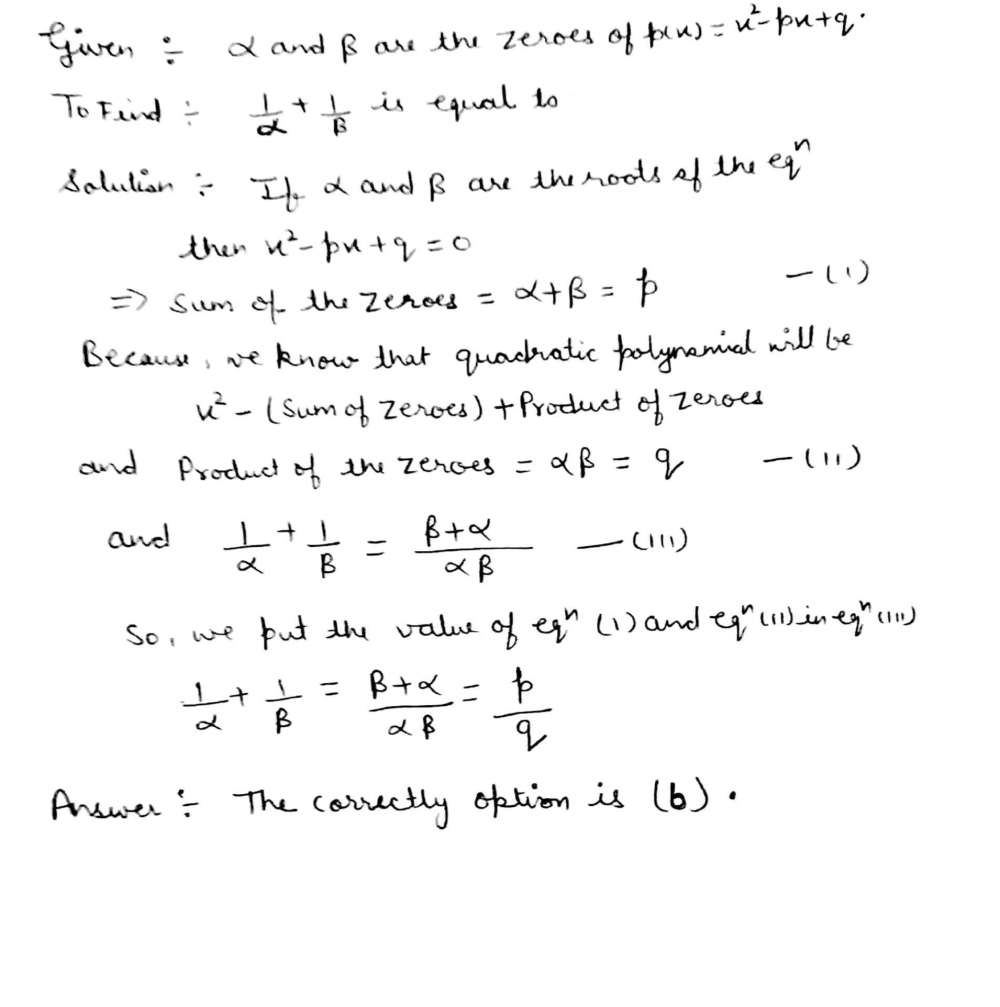 Given ÷ α and β are the zeroes of p(x) = x²-px+q.
To Find ÷ 1/α + 1/β is equal to
Solution ÷ If α and β are the roots of the eqⁿ
then x²-px+q = 0
=> Sum of the zeroes = α+β = p —(i)
Because, we know that quadratic polynomial will be
x² - (Sum of zeroes) + Product of zeroes
and Product of the zeroes = αβ = q —(ii)
and 1/α + 1/β = β+α/αβ —(iii)
So, we put the value of eqⁿ (i) and eqⁿ (ii) in eqⁿ (iii)
1/α + 1/β = β+α/αβ = p/q
Answer ÷ The correctly option is (b).